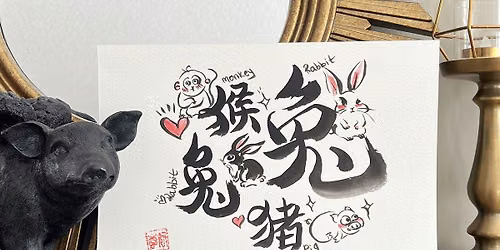 monkey
Rabbit
猴
兔
Rabbit
兔
猪
Pig